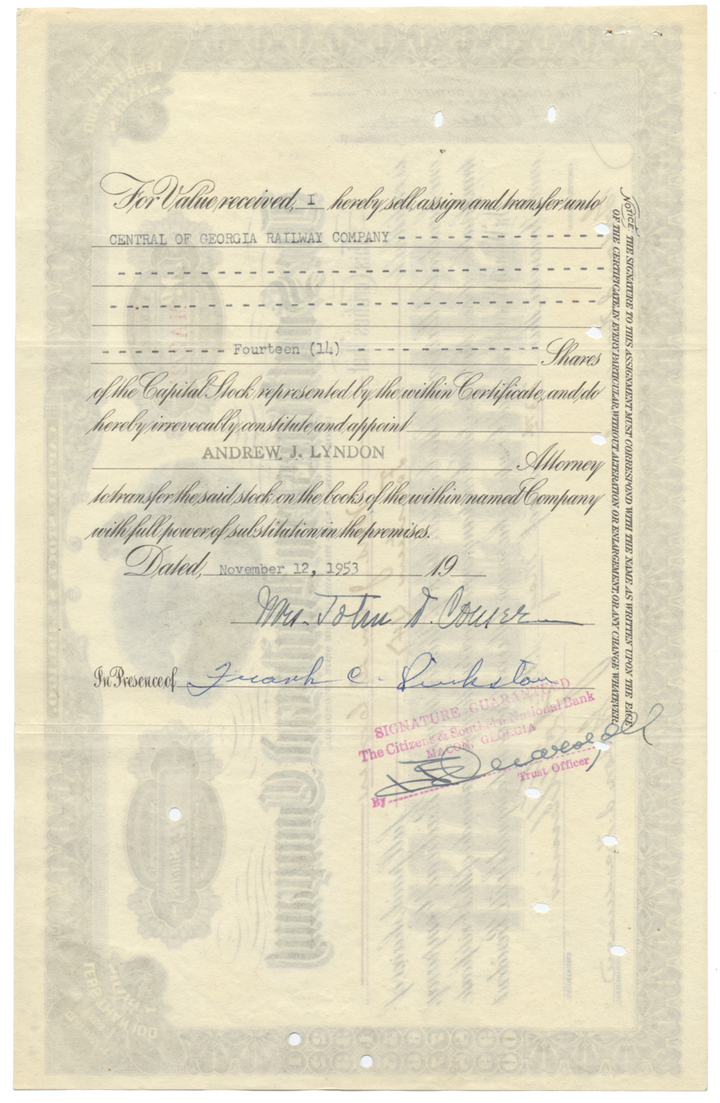 For Value received, I hereby sell, assign, and transfer unto
CENTRAL OF GEORGIA RAILWAY COMPANY - - - - - - - - - - - - - - -
- - - - - - - - - - - - - - - - - - - - - - - - - - - - - - - -
- - - - - - - - - - - - - - - - - - - - - - - - - - - - - - - -
- - - - - - - - Fourteen (14) - - - - - - - - - - - - - Shares
of the Capital Stock represented by the within Certificate, and do
hereby irrevocably constitute and appoint
ANDREW J. LYNDON Attorney
to transfer the said stock on the books of the within named Company
with full power of substitution in the premises.
Dated, November 12, 1953 19
Mrs. John D. Couser
In Presence of Frank C. Pinkston
SIGNATURE GUARANTEED
The Citizens & Southern National Bank
MACON, GEORGIA
By
Trust Officer
NOTICE. THE SIGNATURE TO THIS ASSIGNMENT MUST CORRESPOND WITH THE NAME AS WRITTEN UPON THE FACE
OF THE CERTIFICATE, IN EVERY PARTICULAR, WITHOUT ALTERATION OR ENLARGEMENT, OR ANY CHANGE WHATEVER.